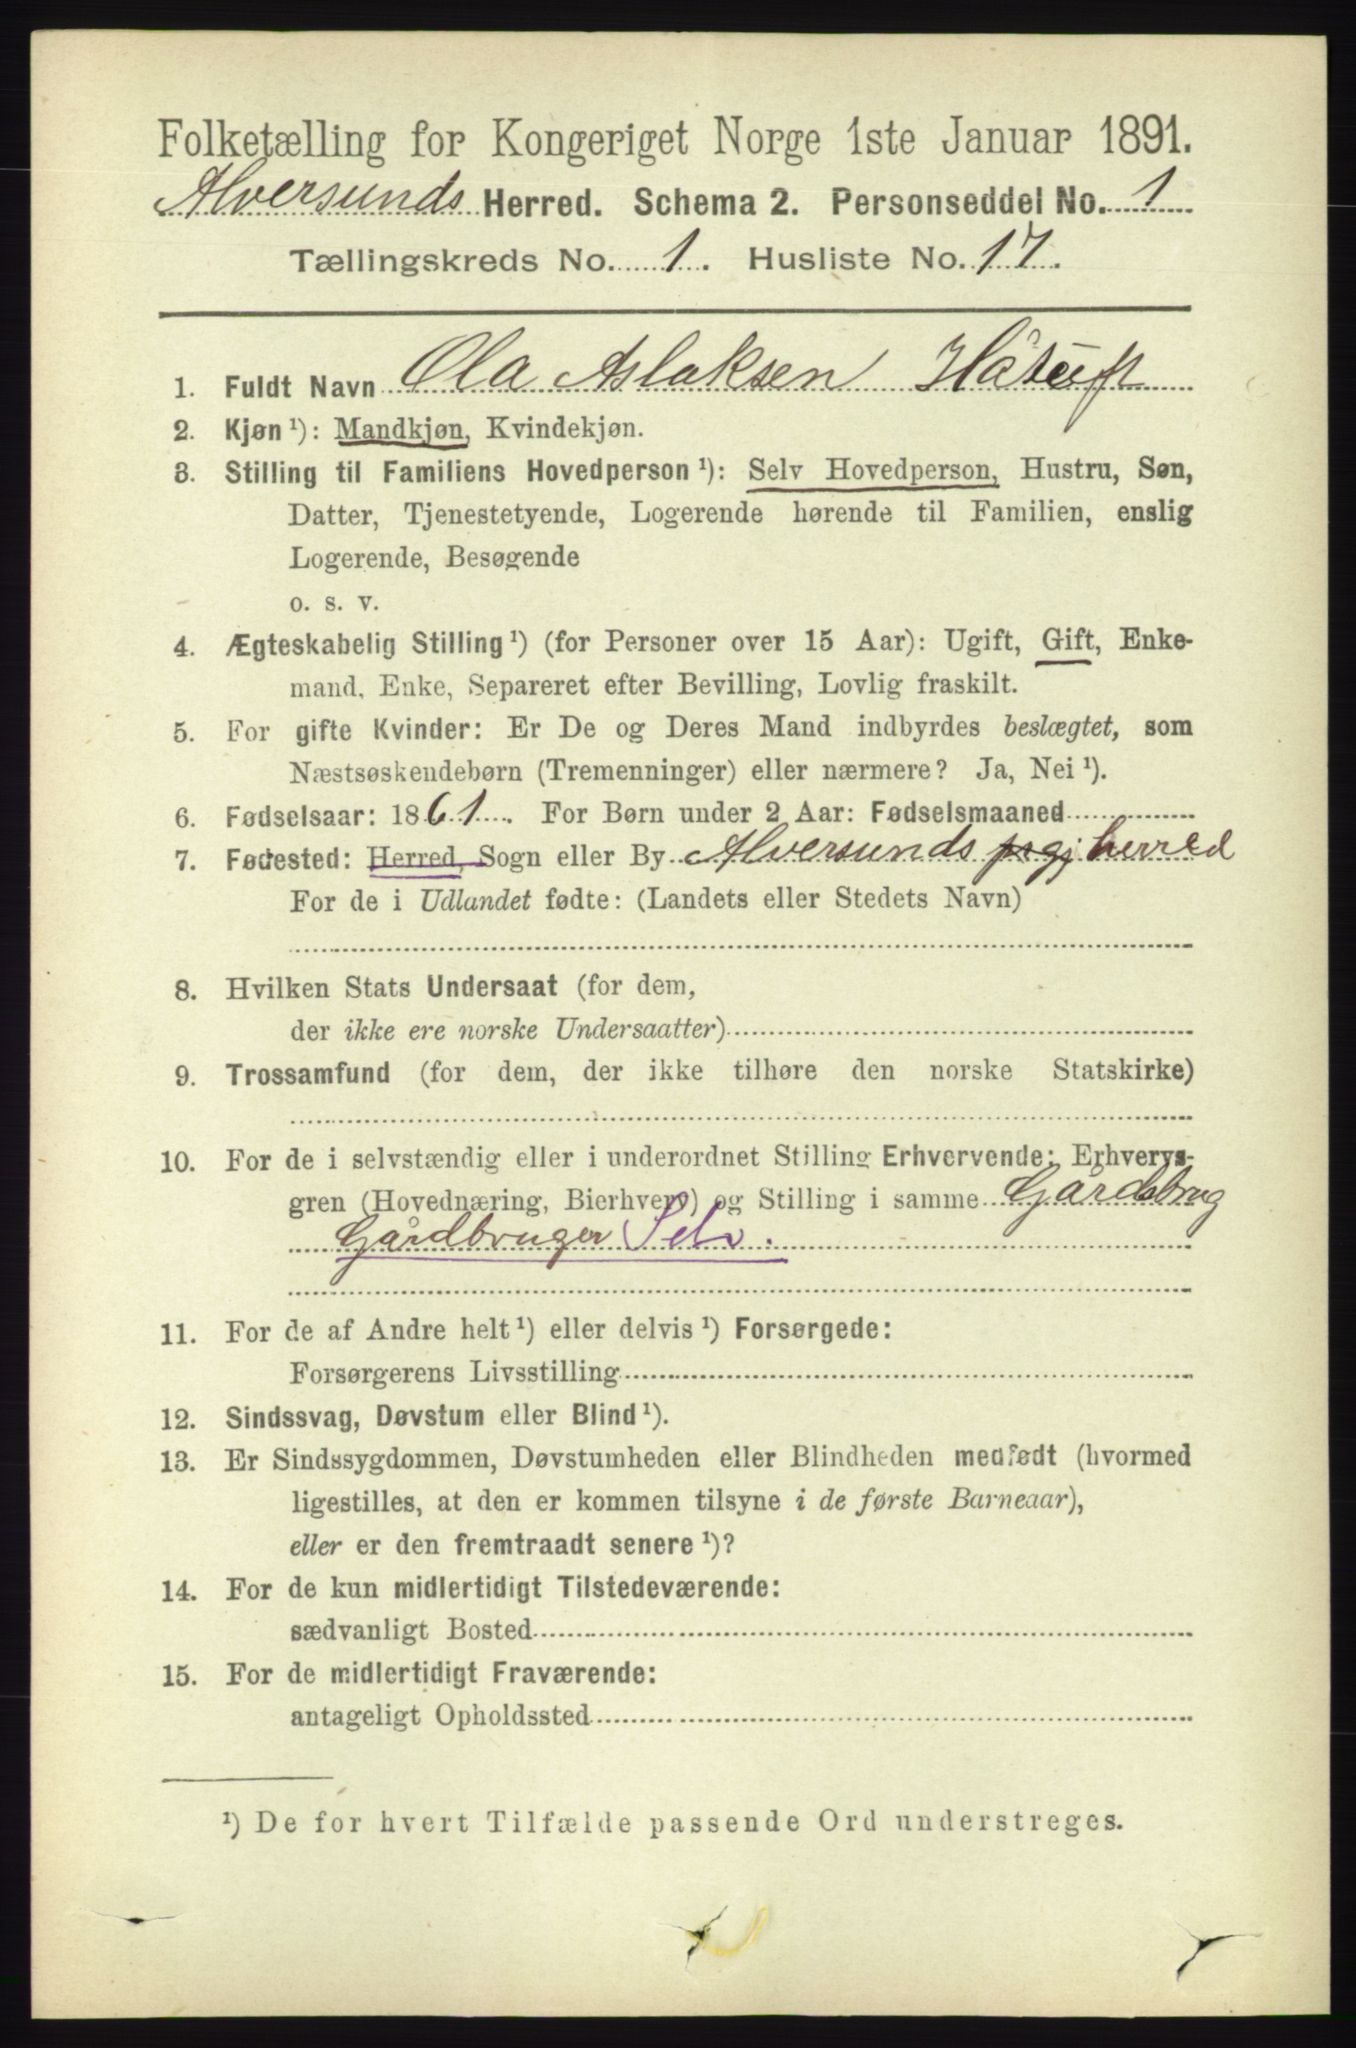 Folketælling for Kongeriget Norge 1ste Januar 1891.
Alversunds Herred. Schema 2. Personseddel No. 1
Tællingskreds No. 1. Husliste No. 17.
1. Fuldt Navn Ola Aslaksen Håtuft
2. Kjøn ¹): Mandkjøn, Kvindekjøn.
3. Stilling til Familiens Hovedperson ¹): Selv Hovedperson, Hustru, Søn,
Datter, Tjenestetyende, Logerende hørende til Familien, enslig
Logerende, Besøgende
o. s. v.
4. Ægteskabelig Stilling ¹) (for Personer over 15 Aar): Ugift, Gift, Enke-
mand, Enke, Separeret efter Bevilling, Lovlig fraskilt.
5. For gifte Kvinder: Er De og Deres Mand indbyrdes beslægtet, som
Næstsøskendebørn (Tremenninger) eller nærmere? Ja, Nei ¹).
6. Fødselsaar: 1861. For Børn under 2 Aar: Fødselsmaaned
7. Fødested: Herred, Sogn eller By Alversunds prgj herred
For de i Udlandet fødte: (Landets eller Stedets Navn)
8. Hvilken Stats Undersaat (for dem,
der ikke ere norske Undersaatter)
9. Trossamfund (for dem, der ikke tilhøre den norske Statskirke)
10. For de i selvstændig eller i underordnet Stilling Erhvervende: Erhvervs-
gren (Hovednæring, Bierhverv) og Stilling i samme Gårdsbrug
Gårdbruger Selv.
11. For de af Andre helt ¹) eller delvis ¹) Forsørgede:
Forsørgerens Livsstilling
12. Sindssvag, Døvstum eller Blind ¹).
13. Er Sindssygdommen, Døvstumheden eller Blindheden medfødt (hvormed
ligestilles, at den er kommen tilsyne i de første Barneaar),
eller er den fremtraadt senere ¹)?
14. For de kun midlertidigt Tilstedeværende:
sædvanligt Bosted
15. For de midlertidigt Fraværende:
antageligt Opholdssted
¹) De for hvert Tilfælde passende Ord understreges.